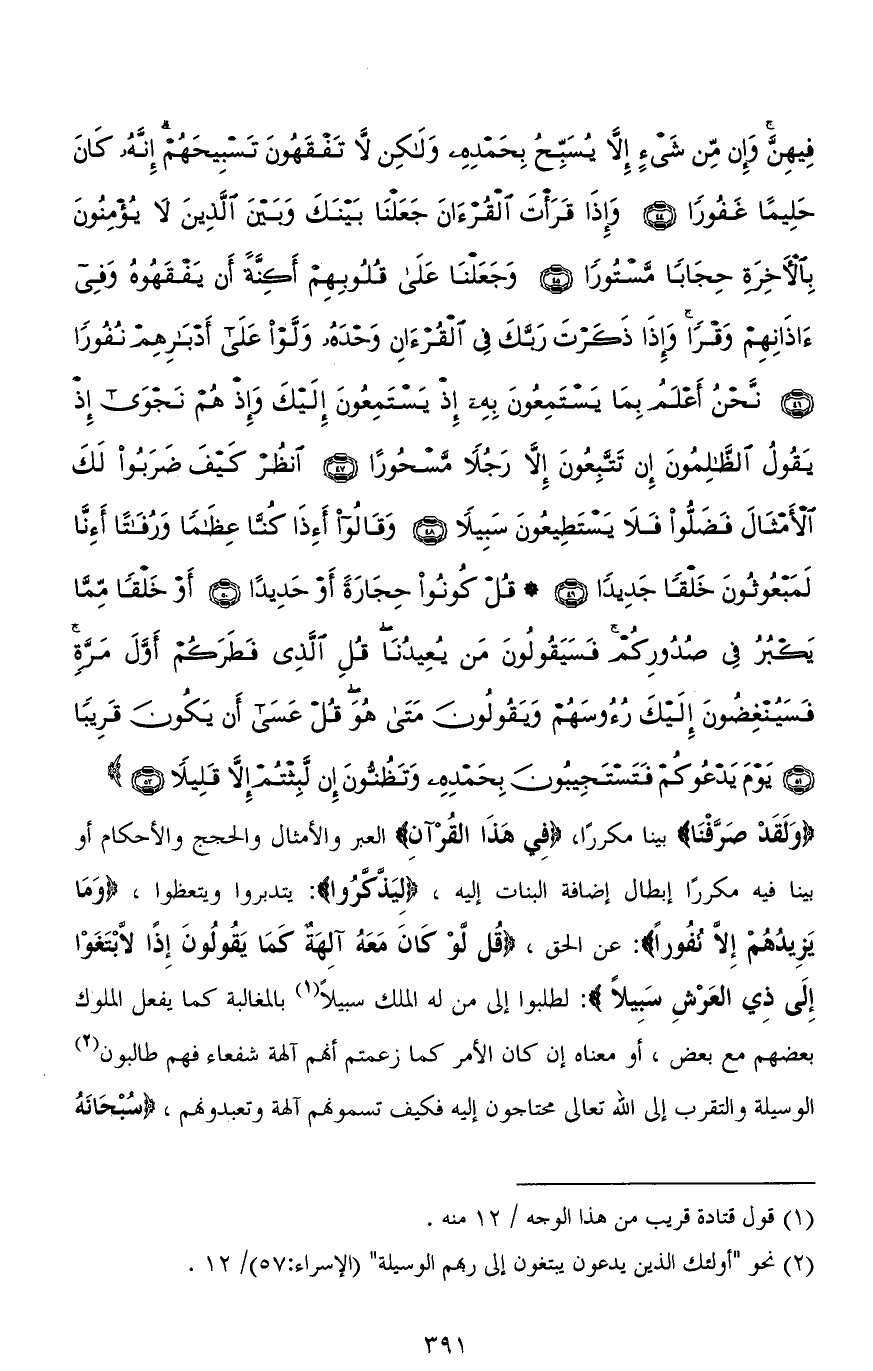 فِيهِنَّۚ وَإِن مِّن شَىْءٍ إِلَّا يُسَبِّحُ بِحَمْدِهِۦ وَلَٰكِن لَّا تَفْقَهُونَ تَسْبِيحَهُمْۗ إِنَّهُۥ كَانَ
حَلِيمًا غَفُورًا ﴿٤٤﴾ وَإِذَا قَرَأْتَ ٱلْقُرْءَانَ جَعَلْنَا بَيْنَكَ وَبَيْنَ ٱلَّذِينَ لَا يُؤْمِنُونَ
بِٱلْأَخِرَةِ حِجَابًا مَّسْتُورًا ﴿٤٥﴾ وَجَعَلْنَا عَلَىٰ قُلُوبِهِمْ أَكِنَّةً أَن يَفْقَهُوهُ وَفِىٓ
ءَاذَانِهِمْ وَقْرًاۚ وَإِذَا ذَكَرْتَ رَبَّكَ فِى ٱلْقُرْءَانِ وَحْدَهُۥ وَلَّوْا۟ عَلَىٰٓ أَدْبَٰرِهِمْ نُفُورًا
﴿٤٦﴾ نَّحْنُ أَعْلَمُ بِمَا يَسْتَمِعُونَ بِهِۦٓ إِذْ يَسْتَمِعُونَ إِلَيْكَ وَإِذْ هُمْ نَجْوَىٰٓ إِذْ
يَقُولُ ٱلظَّٰلِمُونَ إِن تَتَّبِعُونَ إِلَّا رَجُلًا مَّسْحُورًا ﴿٤٧﴾ ٱنظُرْ كَيْفَ ضَرَبُوا۟ لَكَ
ٱلْأَمْثَالَ فَضَلُّوا۟ فَلَا يَسْتَطِيعُونَ سَبِيلًا ﴿٤٨﴾ وَقَالُوٓا۟ أَءِذَا كُنَّا عِظَٰمًا وَرُفَٰتًا أَءِنَّا
لَمَبْعُوثُونَ خَلْقًا جَدِيدًا ﴿٤٩﴾ * قُلْ كُونُوا۟ حِجَارَةً أَوْ حَدِيدًا ﴿٥٠﴾ أَوْ خَلْقًا مِّمَّا
يَكْبُرُ فِى صُدُورِكُمْۚ فَسَيَقُولُونَ مَن يُعِيدُنَاۖ قُلِ ٱلَّذِى فَطَرَكُمْ أَوَّلَ مَرَّةٍۚ
فَسَيُنْغِضُونَ إِلَيْكَ رُءُوسَهُمْ وَيَقُولُونَ مَتَىٰ هُوَۖ قُلْ عَسَىٰٓ أَن يَكُونَ قَرِيبًا
﴿٥١﴾ يَوْمَ يَدْعُوكُمْ فَتَسْتَجِيبُونَ بِحَمْدِهِۦ وَتَظُنُّونَ إِن لَّبِثْتُمْ إِلَّا قَلِيلًا ﴿٥٢﴾ ﴾
﴿وَلَقَدْ صَرَّفْنَا﴾ بينا مكررًا، ﴿فِي هَذَا القُرْآنِ﴾ العبر والأمثال والحجج والأحكام أو
بينا فيه مكررًا إبطال إضافة البنات إليه ، ﴿لِيَذَّكَّرُوا﴾: يتدبروا ويتعظوا ، ﴿وَمَا
يَزِيدُهُمْ إِلاَّ نُفُوراً﴾: عن الحق ، ﴿قُل لَّوْ كَانَ مَعَهُ آلِهَةٌ كَمَا يَقُولُونَ إِذًا لاَّبْتَغَوْا
إِلَى ذِي العَرْشِ سَبِيلاً ﴾: لطلبوا إلى من له الملك سبيلاً(١) بالمغالبة كما يفعل الملوك
بعضهم مع بعض ، أو معناه إن كان الأمر كما زعمتم أنهم آلهة شفعاء فهم طالبون(٢)
الوسيلة والتقرب إلى الله تعالى محتاجون إليه فكيف تسمونهم آلهة وتعبدونهم ، ﴿سُبْحَانَهُ
(١) قول قتادة قريب من هذا الوجه / ١٢ منه .
(٢) نحو "أولئك الذين يدعون يبتغون إلى ربهم الوسيلة" (الإسراء:٥٧)/ ١٢ .
٣٩١